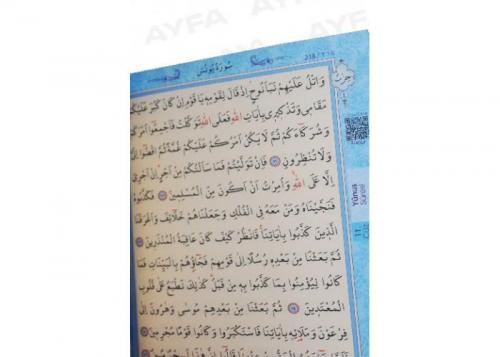 AYFA
سُورَةُ يُونُسَ
وَاتْلُ عَلَيْهِمْ نَبَاَ نُوحٍ اِذْ قَالَ لِقَوْمِهِ يَا قَوْمِ اِنْ كَانَ كَبُرَ عَلَيْكُمْ
مَقَامِي وَتَذْكِيرِي بِاٰيَاتِ اللّٰهِ فَعَلَى اللّٰهِ تَوَكَّلْتُ فَاَجْمِعُوا اَمْرَكُمْ
وَشُرَكَاءَكُمْ ثُمَّ لَا يَكُنْ اَمْرُكُمْ عَلَيْكُمْ غُمَّةً ثُمَّ اقْضُوا
وَلَا تُنْظِرُونِ ﴿٧١﴾ فَاِنْ تَوَلَّيْتُمْ فَمَا سَاَلْتُكُمْ مِنْ اَجْرٍ اِنْ اَجْرِيَ
اِلَّا عَلَى اللّٰهِ وَاُمِرْتُ اَنْ اَكُونَ مِنَ الْمُسْلِمِينَ ﴿٧٢﴾ فَكَذَّبُوهُ
فَنَجَّيْنَاهُ وَمَنْ مَعَهُ فِي الْفُلْكِ وَجَعَلْنَاهُمْ خَلَائِفَ وَاَغْرَقْنَا
الَّذِينَ كَذَّبُوا بِاٰيَاتِنَا فَانْظُرْ كَيْفَ كَانَ عَاقِبَةُ الْمُنْذَرِينَ ﴿٧٣﴾
ثُمَّ بَعَثْنَا مِنْ بَعْدِهِ رُسُلًا اِلَى قَوْمِهِمْ فَجَاؤُهُمْ بِالْبَيِّنَاتِ فَمَا
كَانُوا لِيُؤْمِنُوا بِمَا كَذَّبُوا بِهِ مِنْ قَبْلُ كَذٰلِكَ نَطْبَعُ عَلَى قُلُوبِ
الْمُعْتَدِينَ ﴿٧٤﴾ ثُمَّ بَعَثْنَا مِنْ بَعْدِهِمْ مُوسٰى وَهٰرُونَ اِلَى
فِرْعَوْنَ وَمَلَائِهِ بِاٰيَاتِنَا فَاسْتَكْبَرُوا وَكَانُوا قَوْمًا مُجْرِمِينَ
Yûnus
Sûresi
11